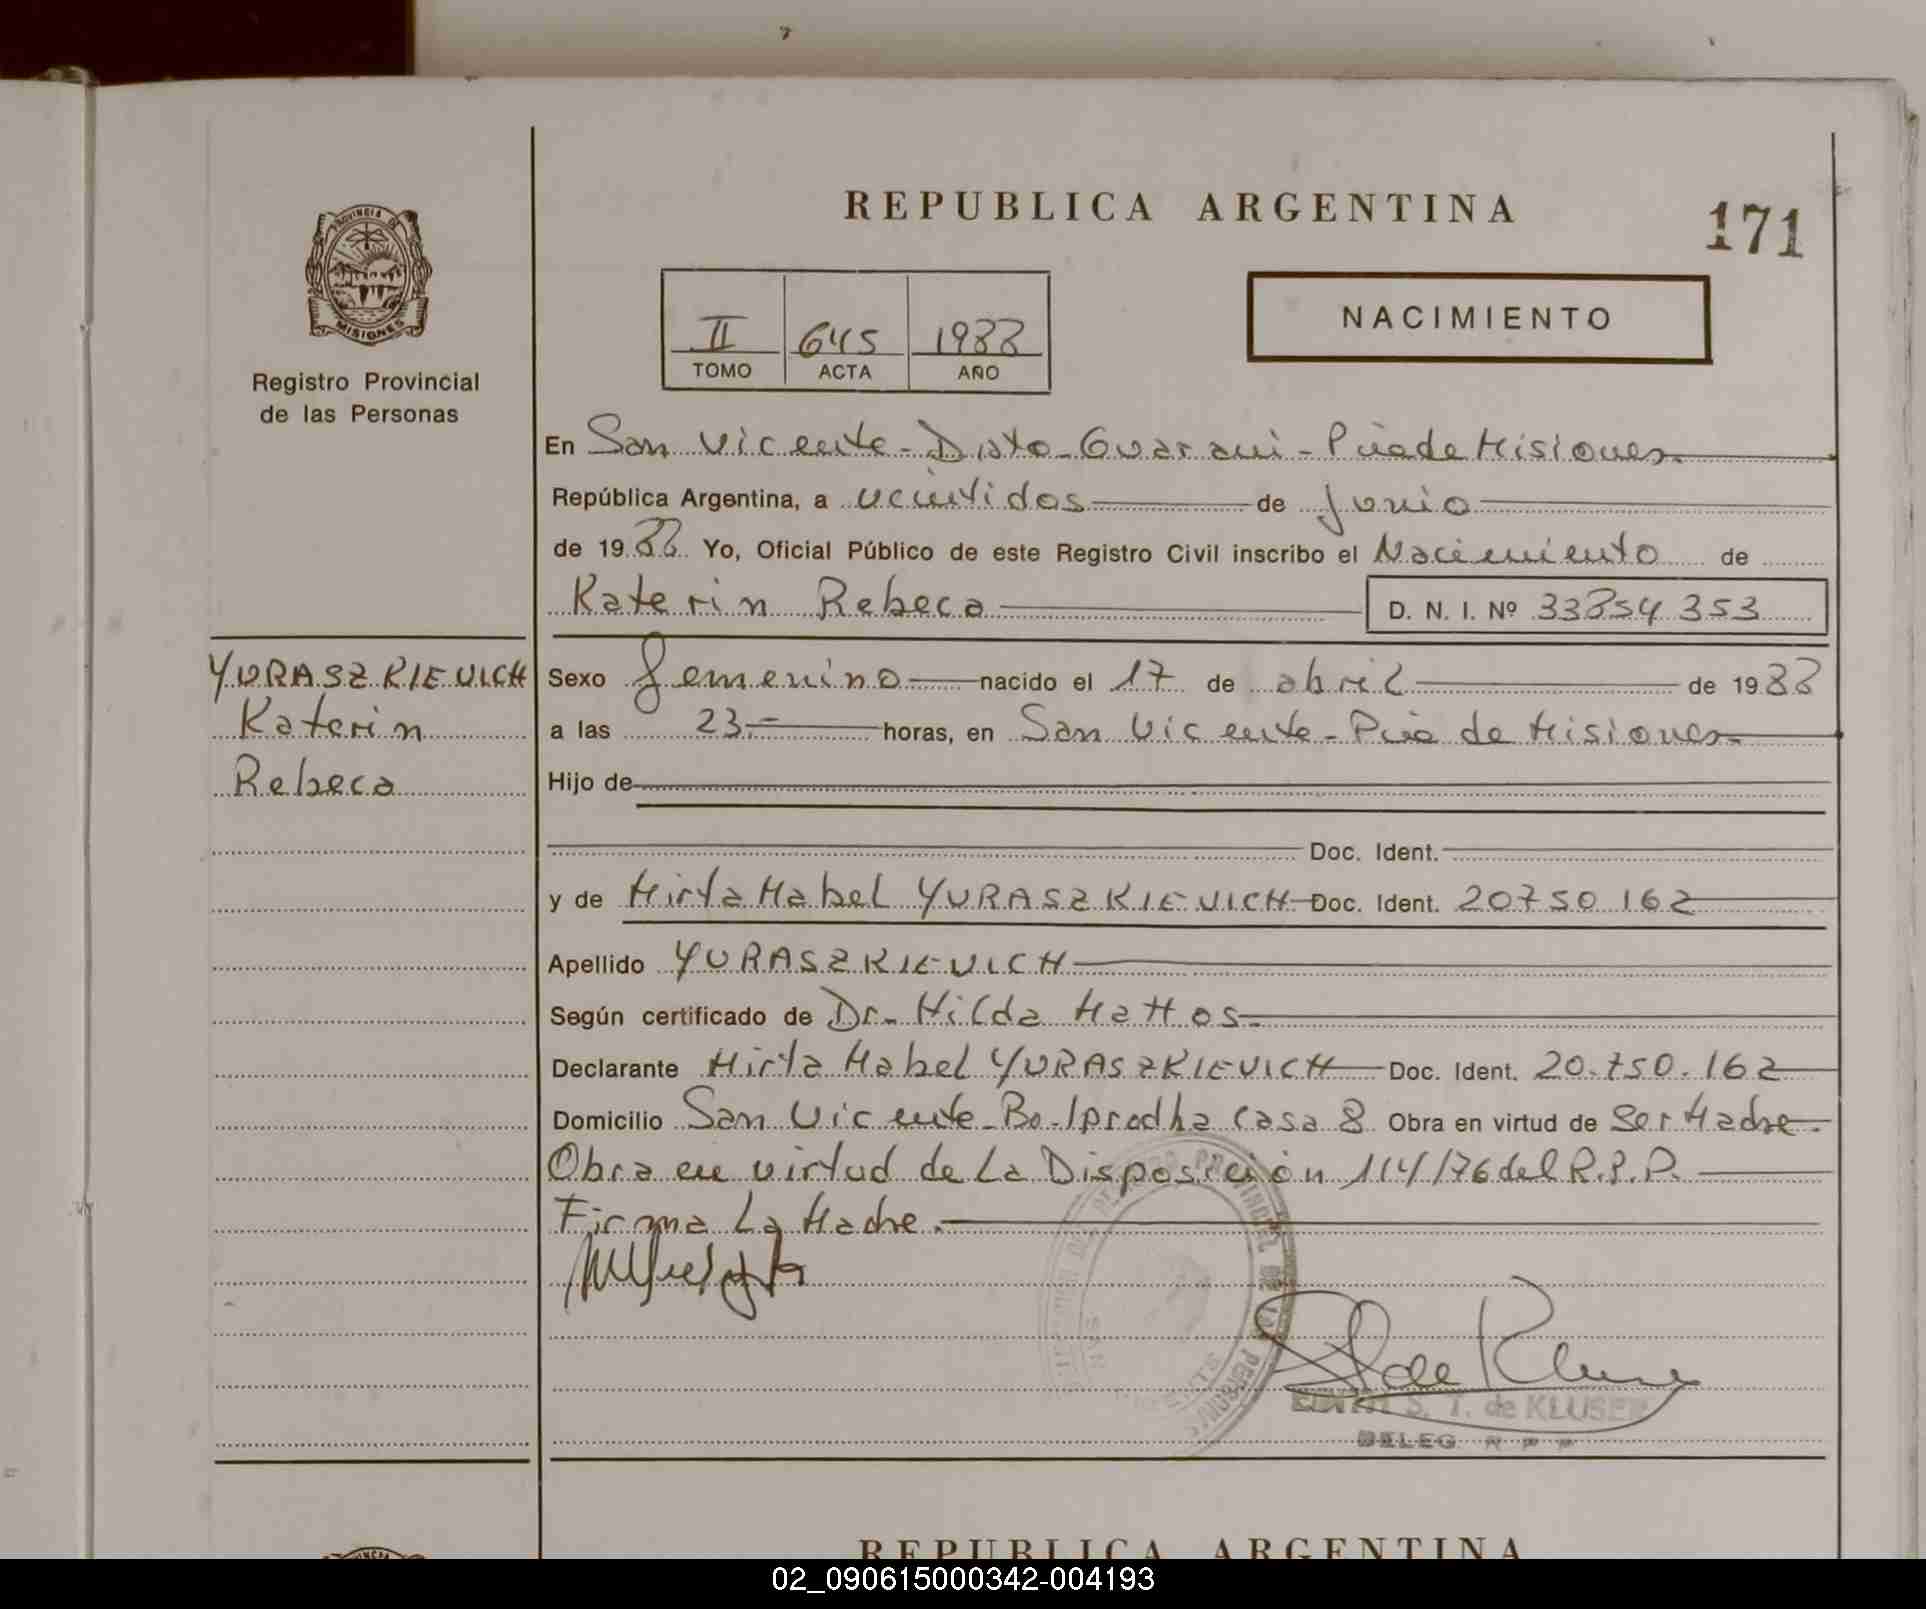 REPUBLICA ARGENTINA
171
PROVINCIA DE
MISIONES
Registro Provincial
de las Personas
II 645 1988
TOMO ACTA AÑO
NACIMIENTO
En San Vicente - Dpto - Guarani - Pcia de Misiones.
República Argentina, a veintidos de Junio
de 1988 Yo, Oficial Público de este Registro Civil inscribo el Nacimiento de
Katerin Rebeca D. N. I. Nº 33854353
YURASZKIEVICH
Katerin
Rebeca
Sexo femenino nacido el 17 de abril de 1988
a las 23.- horas, en San Vicente - Pcia de Misiones.
Hijo de
Doc. Ident.
y de Mirta Mabel YURASZKIEVICH Doc. Ident. 20750162
Apellido YURASZKIEVICH
Según certificado de Dr. Hilda Mattos.
Declarante Mirta Mabel YURASZKIEVICH Doc. Ident. 20.750.162
Domicilio San Vicente - Bo - Iprodha casa 8 Obra en virtud de Ser Madre.
Obra en virtud de La Disposición 114/76 del R.P.P.
Firma La Madre.
S. T. de KLUSER
DELEG R P P
REPUBLICA ARGENTINA
02_090615000342-004193